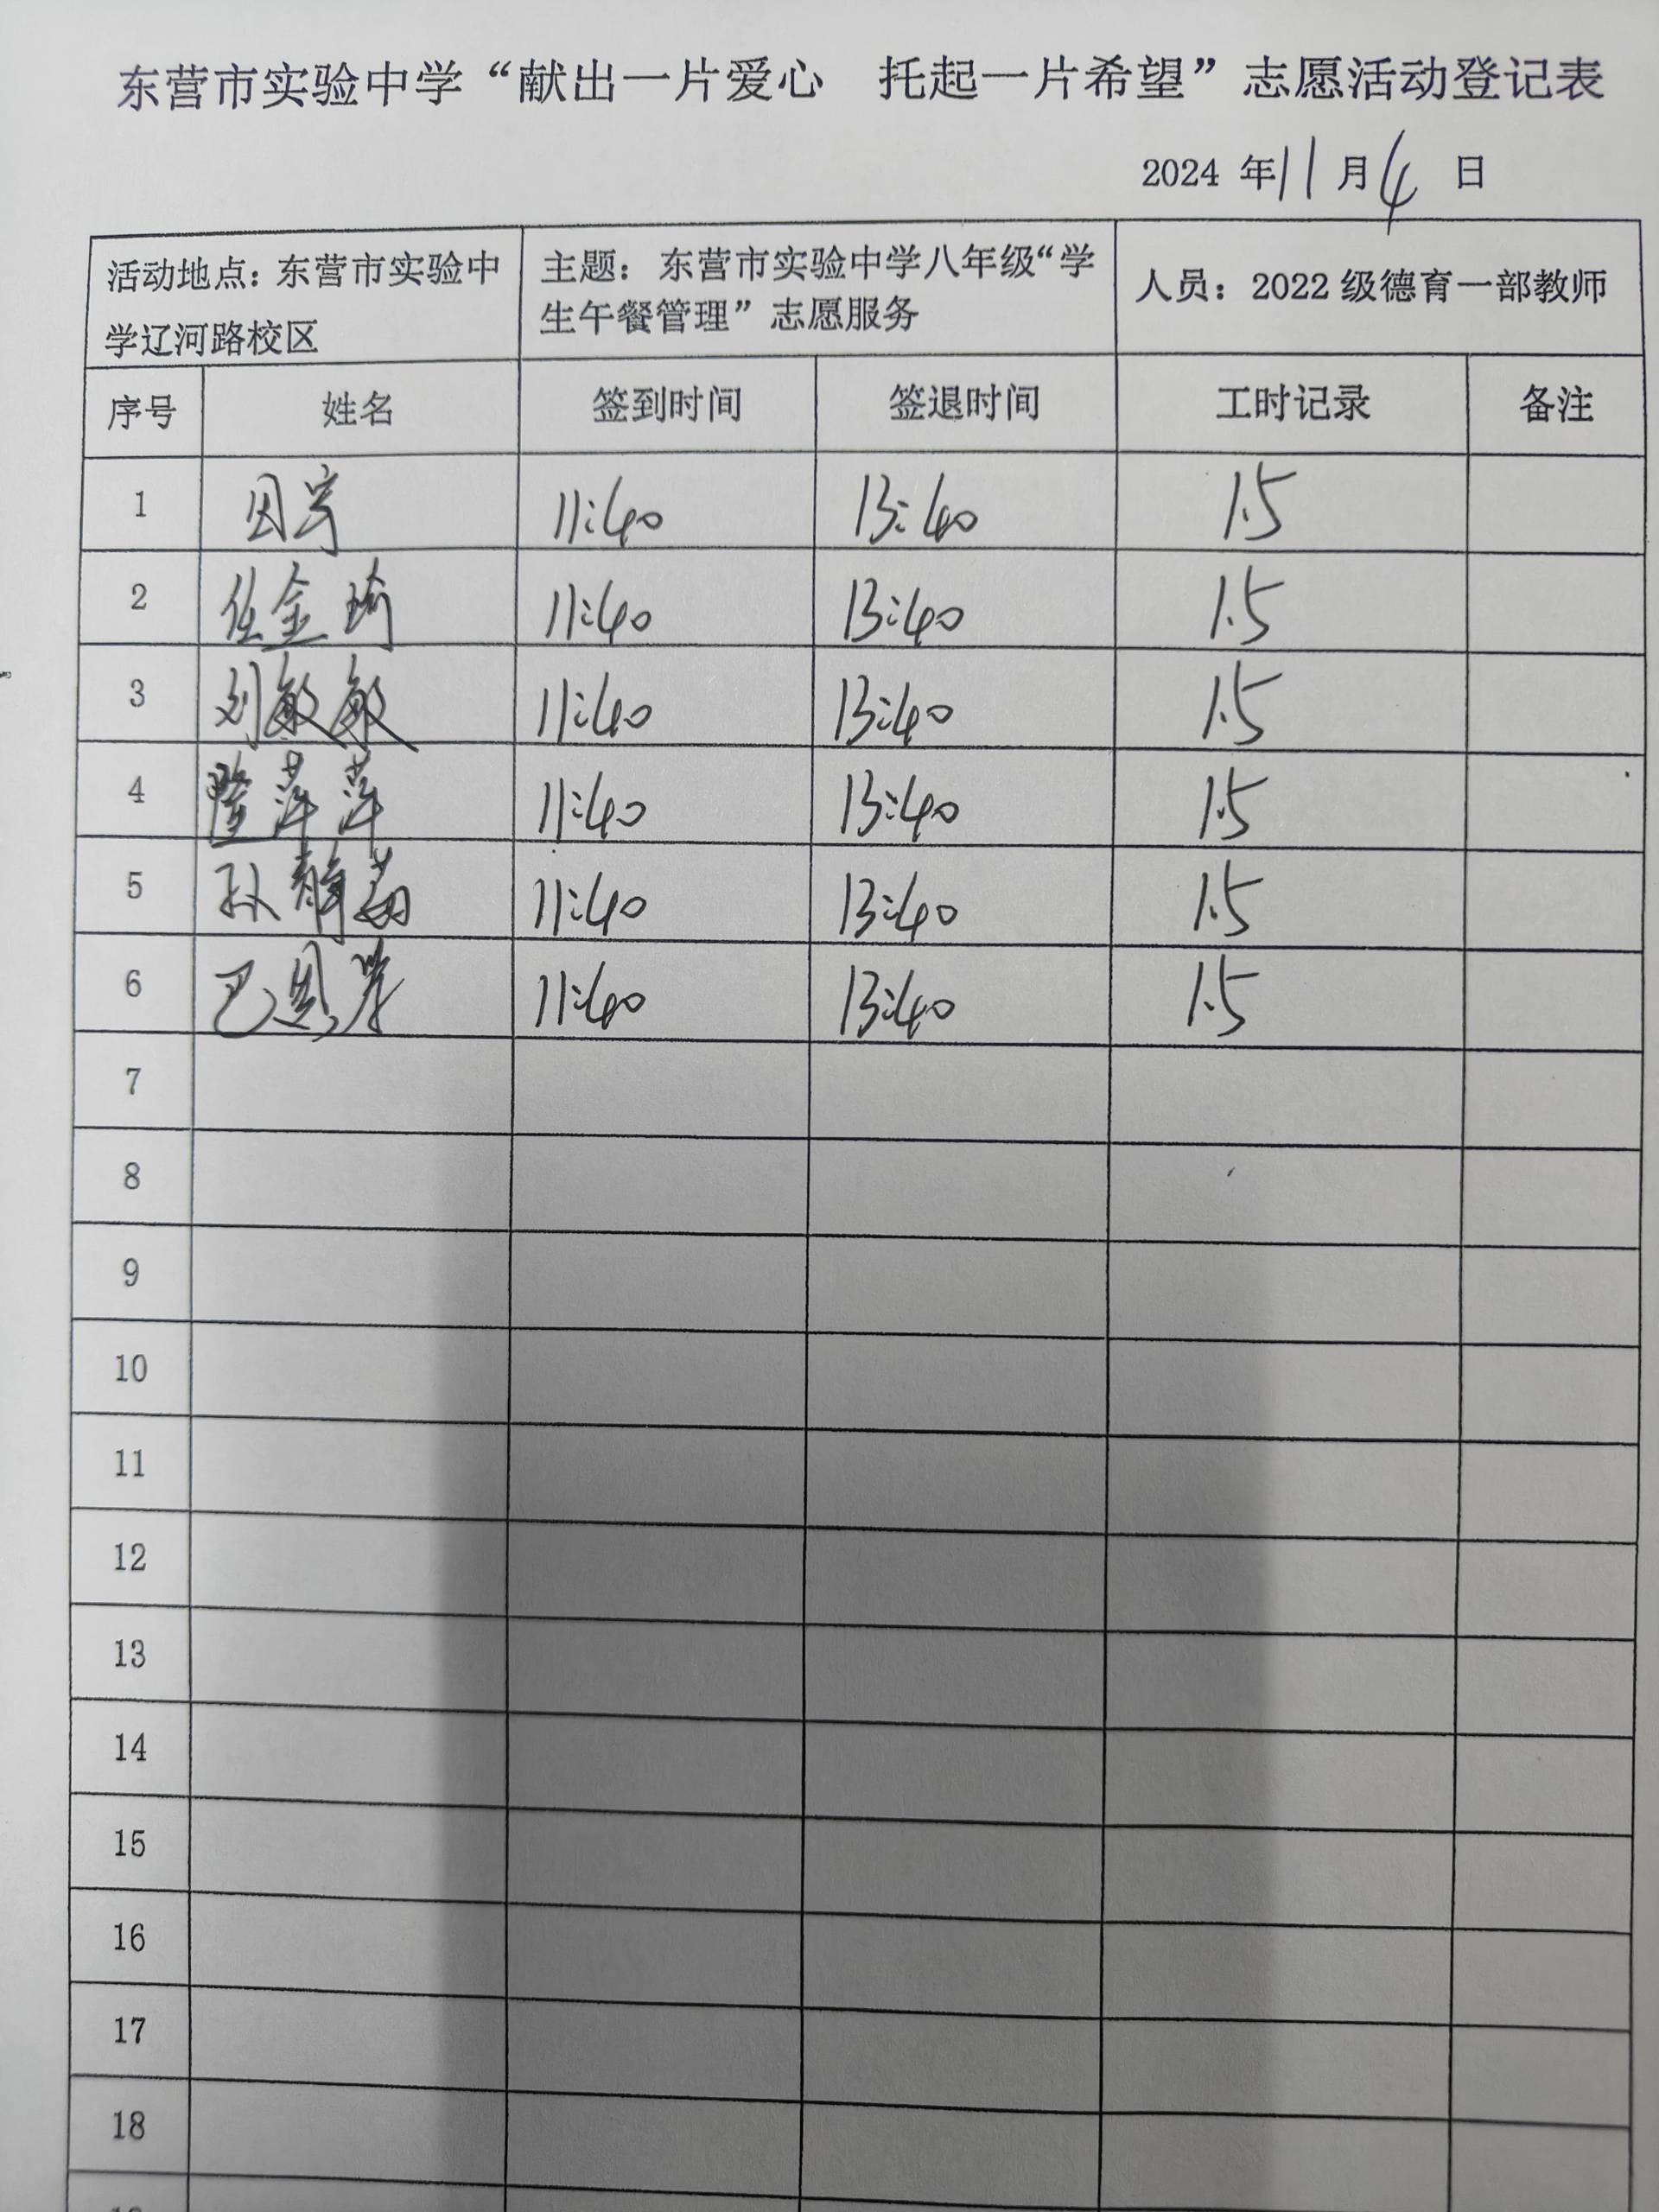 东营市实验中学“献出一片爱心 托起一片希望”志愿活动登记表
2024 年 11 月 4 日
活动地点：东营市实验中
学辽河路校区
主题：东营市实验中学八年级“学
生午餐管理”志愿服务
人员：2022 级德育一部教师
序号 姓名 签到时间 签退时间 工时记录 备注
1 11:40 13:40 1.5
2 任金琦 11:40 13:40 1.5
3 刘敏敏 11:40 13:40 1.5
4 隆萍萍 11:40 13:40 1.5
5 孙静茹 11:40 13:40 1.5
6 巴 11:40 13:40 1.5
7
8
9
10
11
12
13
14
15
16
17
18